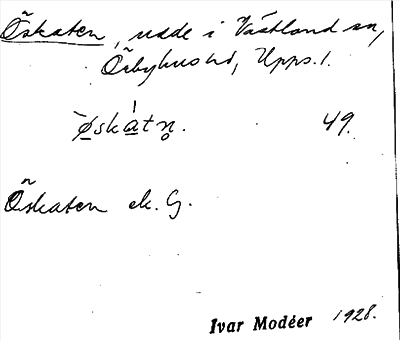 Öskaten, udde i Västland sn,
Örbyhus hd, Upps. l.
`øskàtn̥. 49.
Öskaten ek. G.
Ivar Modéer 1928.